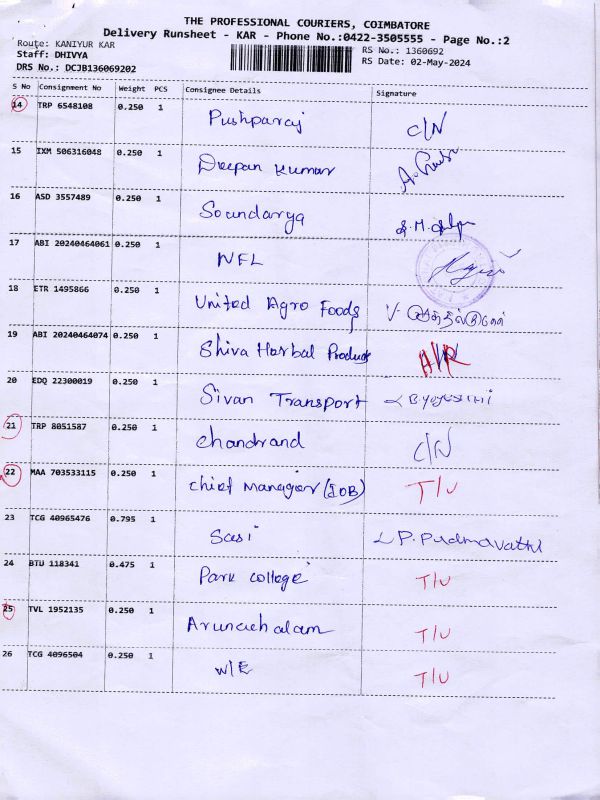 THE PROFESSIONAL COURIERS, COIMBATORE
Delivery Runsheet - KAR - Phone No.:0422-3505555 - Page No.:2
Route: KANIYUR KAR
RS No.: 1360692
Staff: DHIVYA
RS Date: 02-May-2024
DRS No.: DCJB136069202
S No Consignment No Weight PCS Consignee Details Signature
14 TRP 6548108 0.250 1 Pushparaj C/N
15 IXM 506316048 0.250 1 Deepan Kumar
16 ASD 3557489 0.250 1 Soundarya
17 ABI 20240464061 0.250 1 NFL
18 ETR 1495866 0.250 1 United Agro Foods
19 ABI 20240464074 0.250 1 Shiva Harbal Products
20 EDQ 22300019 0.250 1 Sivan Transport
21 TRP 8051587 0.250 1 Chandrand C/N
22 MAA 703533115 0.250 1 Chief Manager (IOB) T/U
23 TCG 40965476 0.795 1 Sasi P. Pudmavathi
24 BTU 118341 0.475 1 Park College T/U
25 TVL 1952135 0.250 1 Arunachalam T/U
26 TCG 4096504 0.250 1 W/E T/U